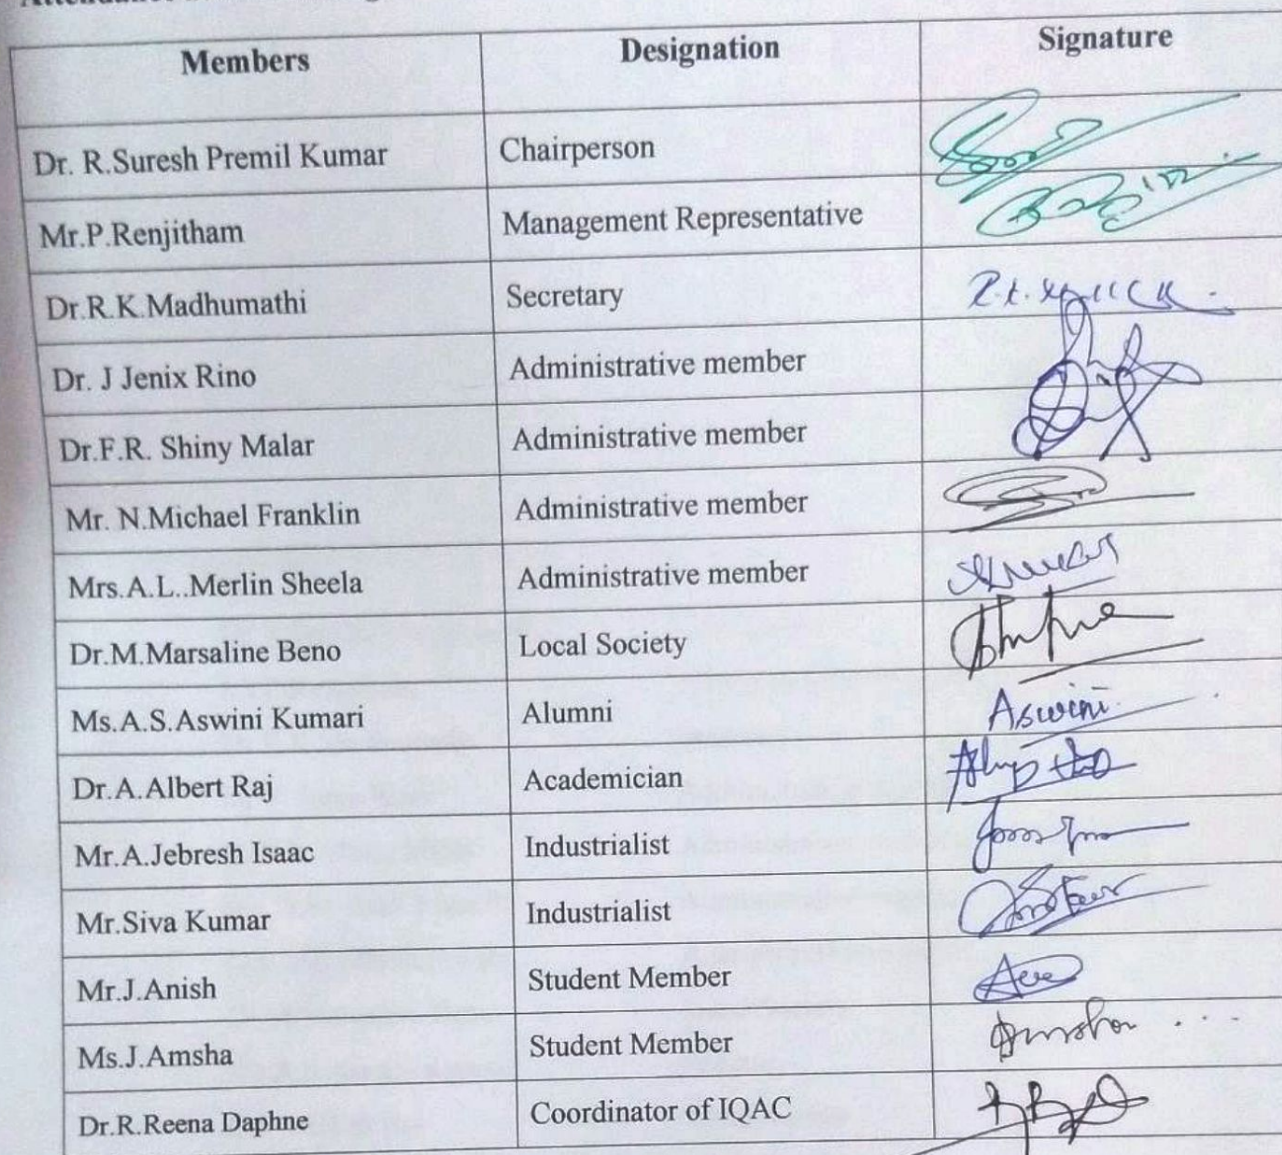 Members Designation Signature
Dr. R.Suresh Premil Kumar Chairperson
Mr.P.Renjitham Management Representative
Dr.R.K.Madhumathi Secretary
Dr. J Jenix Rino Administrative member
Dr.F.R. Shiny Malar Administrative member
Mr. N.Michael Franklin Administrative member
Mrs.A.L..Merlin Sheela Administrative member
Dr.M.Marsaline Beno Local Society
Ms.A.S.Aswini Kumari Alumni Aswini
Dr.A.Albert Raj Academician
Mr.A.Jebresh Isaac Industrialist
Mr.Siva Kumar Industrialist
Mr.J.Anish Student Member
Ms.J.Amsha Student Member
Dr.R.Reena Daphne Coordinator of IQAC